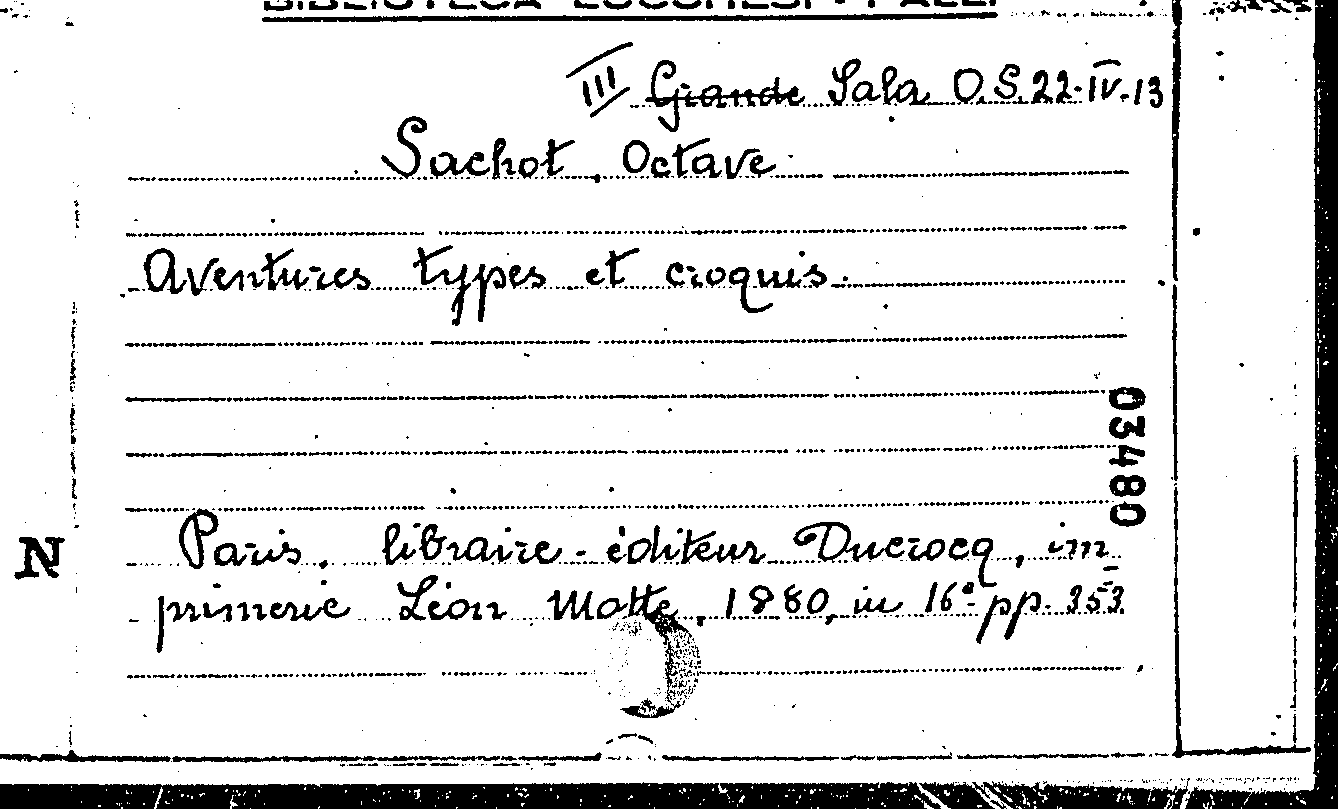 BIBLIOTECA LUCCHESI - PALLI
III Grande Sala O.S.22-IV-13
Sachot, Octave
Aventures types et croquis.
03480
N
Paris, libraire-éditeur Ducrocq, im
primerie Léon Motte, 1880, in 16° pp. 353